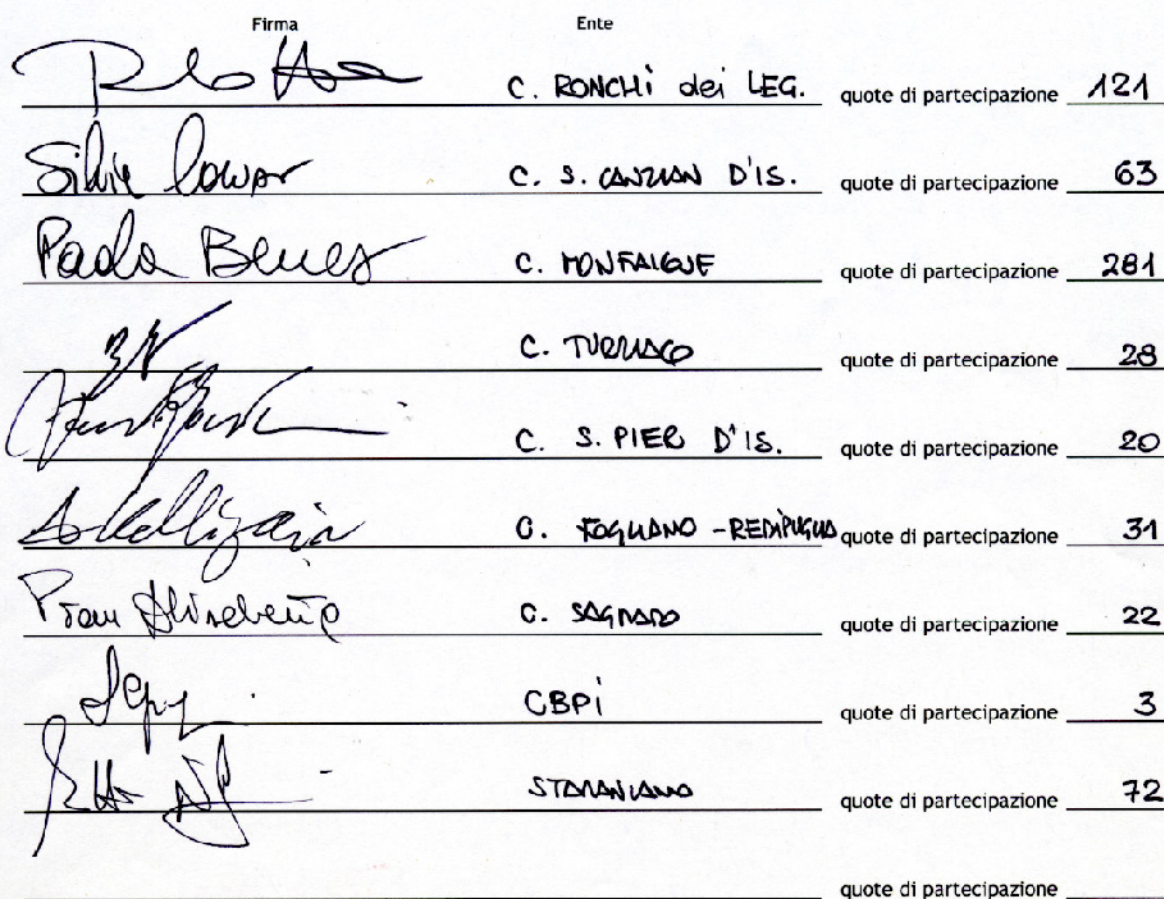 Firma Ente
C. RONCHi dei LEG. quote di partecipazione 121
Silvia C. S. CANZIAN D'IS. quote di partecipazione 63
Paola Benes C. MONFALCONE quote di partecipazione 281
C. TURRIACO quote di partecipazione 28
C. S. PIER D'IS. quote di partecipazione 20
C. FOGLIANO - REDIPUGLIA quote di partecipazione 31
C. SAGRADO quote di partecipazione 22
CBPi quote di partecipazione 3
STARANZANO quote di partecipazione 72
quote di partecipazione